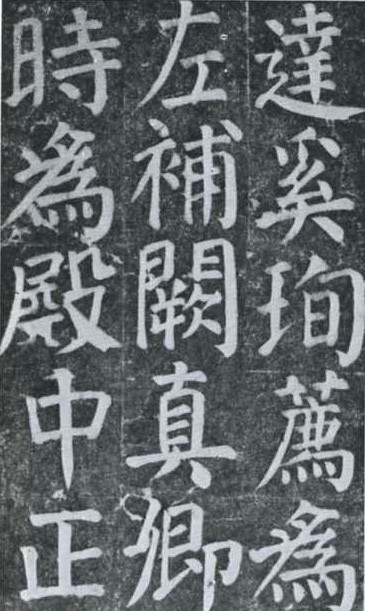 達奚珣薦為
左補闕真卿
時為殿中正